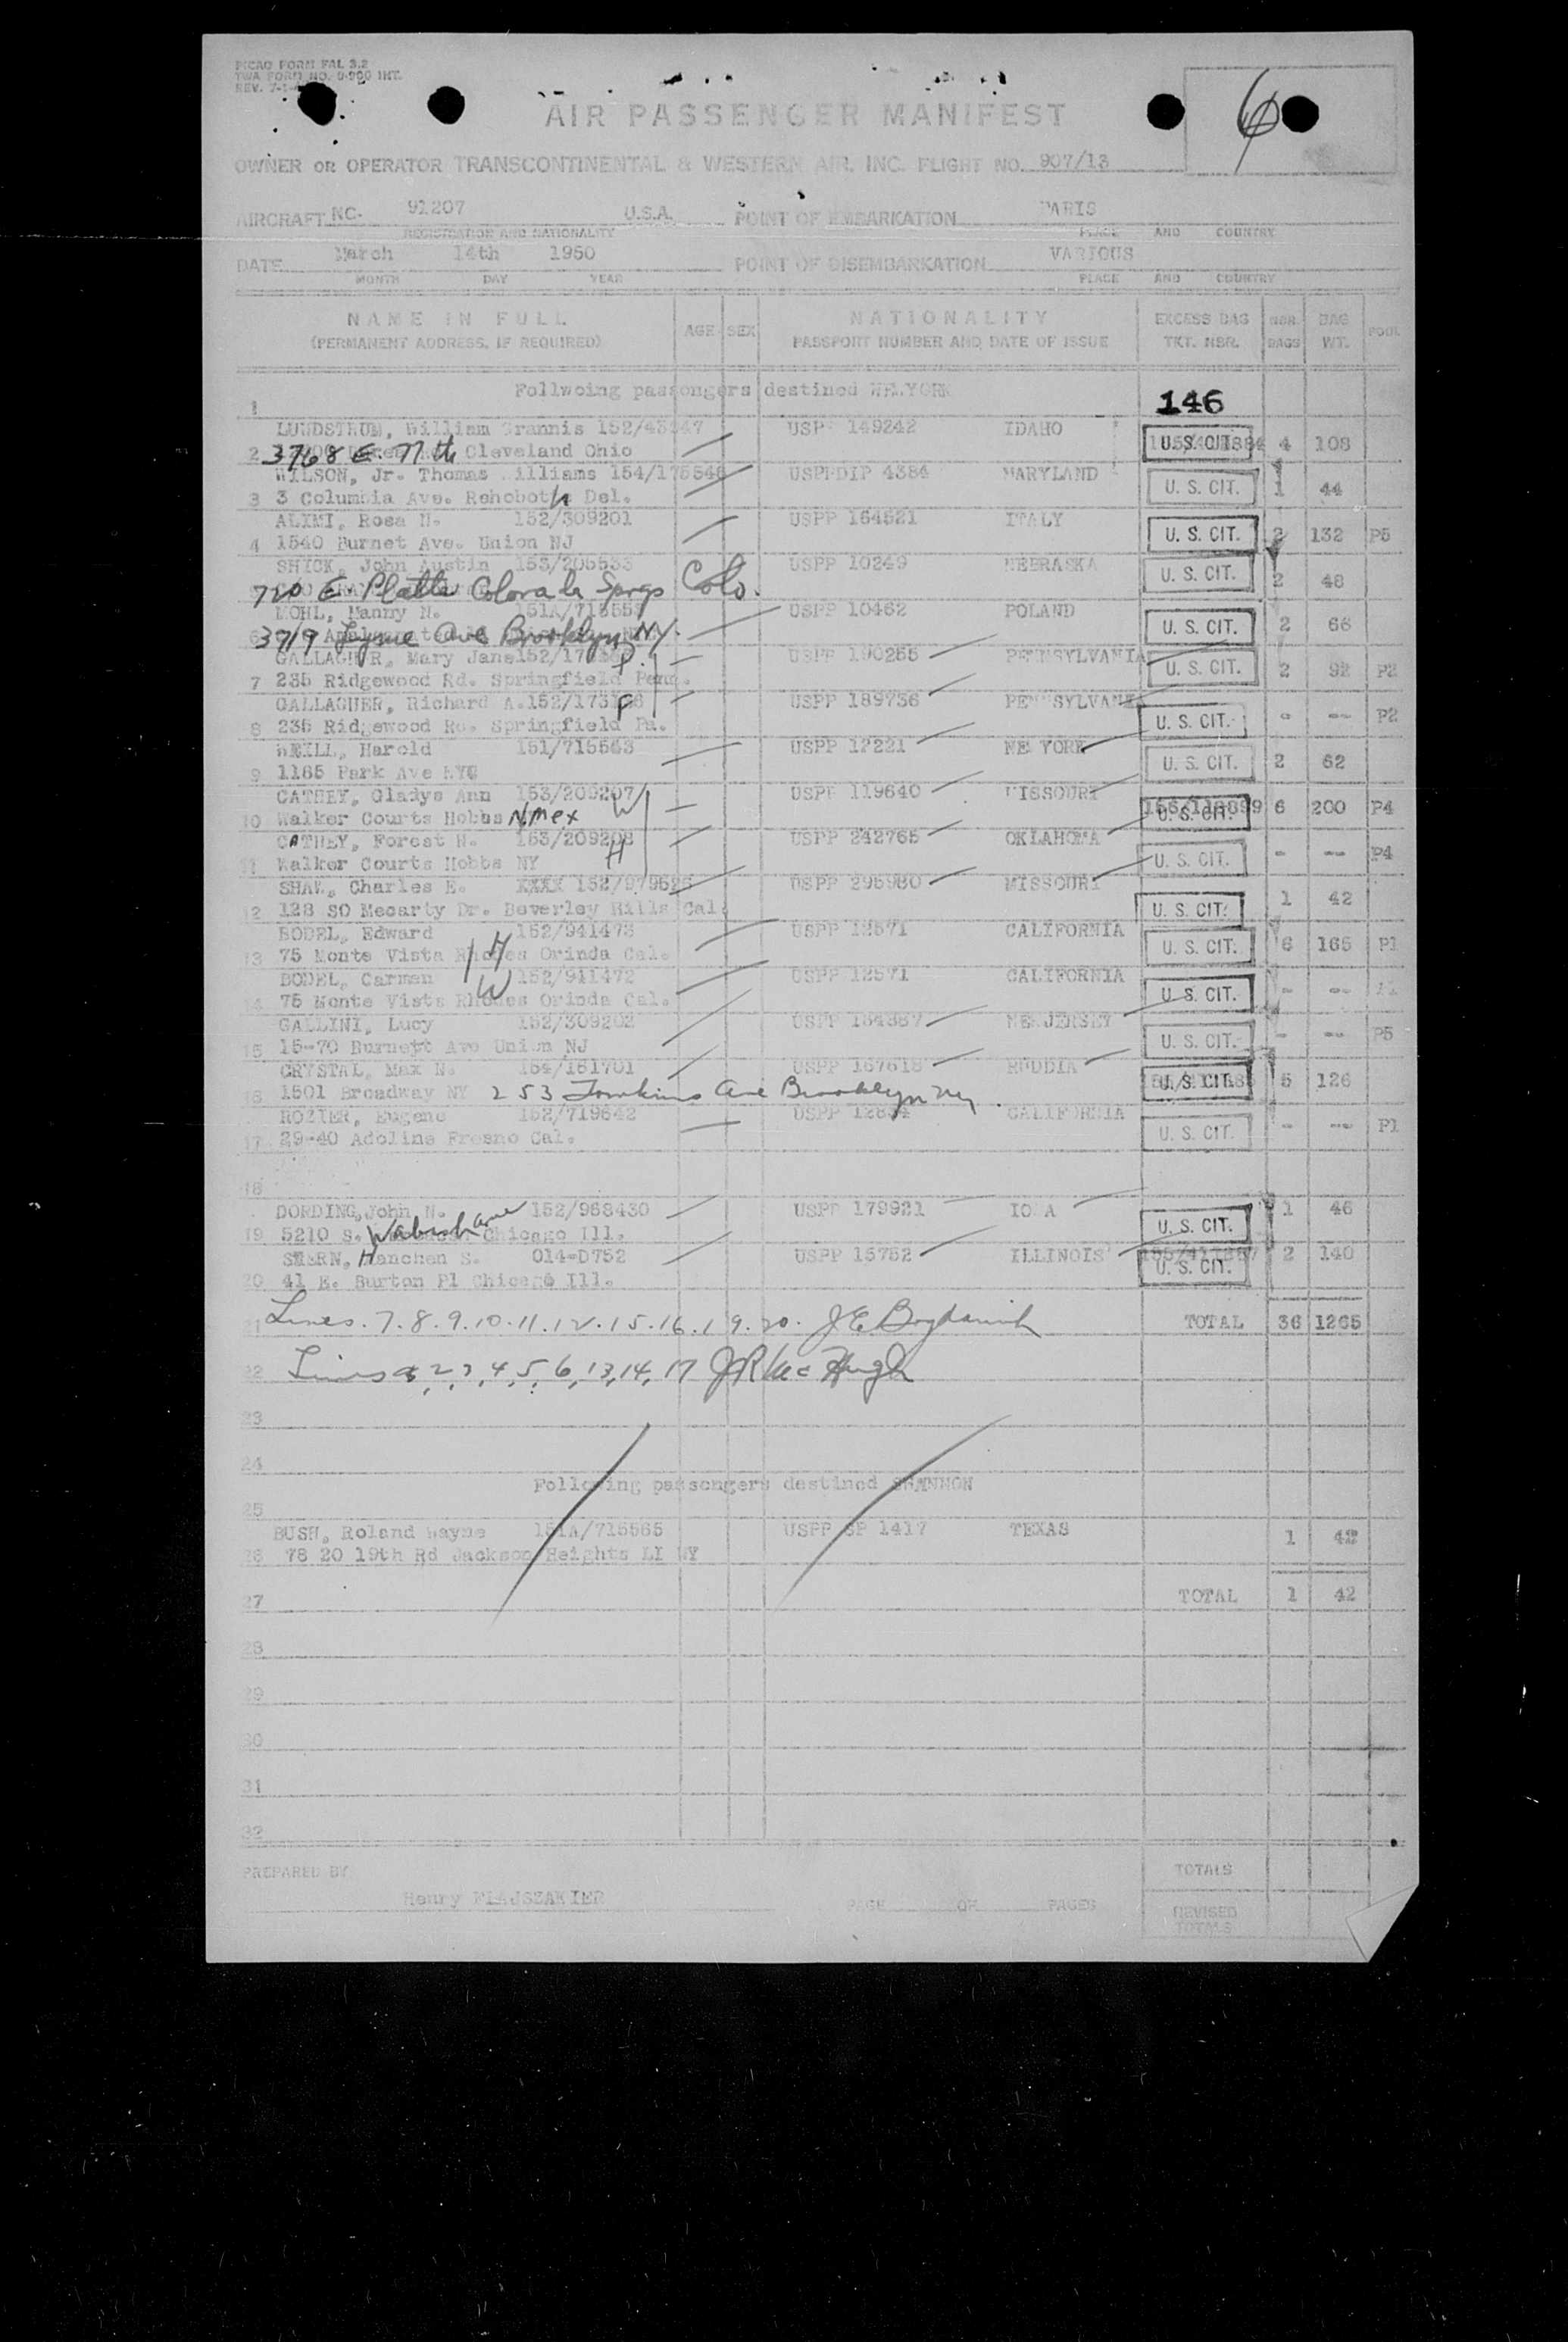 PICAO FORM FAL 3.2
TWA FORM NO. 0-900 INT.
REV. 7-1-
AIR PASSENGER MANIFEST
6
OWNER OR OPERATOR TRANSCONTINENTAL & WESTERN AIR. INC. FLIGHT NO. 907/13
AIRCRAFT NC. 91207 U.S.A. POINT OF EMBARKATION PARIS
REGISTRATION AND NATIONALITY PLACE AND COUNTRY
DATE March 14th 1950 POINT OF DISEMBARKATION VARIOUS
MONTH DAY YEAR PLACE AND COUNTRY
NAME IN FULL AGE SEX NATIONALITY EXCESS BAG NBR. BAG POOL
(PERMANENT ADDRESS, IF REQUIRED) PASSPORT NUMBER AND DATE OF ISSUE TKT. NBR. BAGS WT.
Follwoing passengers destined NEWYORK
1 146
LUNDSTRUM, William Grannis USPP 149242 IDAHO
2 3768 E. 77th Cleveland Ohio U.S. CIT. 4 108
WILSON, Jr. Thomas Williams 154/175546 USPPDIP 4384 MARYLAND
3 3 Columbia Ave. Rehoboth Del. U. S. CIT. 1 44
ALIMI, Rosa N. 152/309201 USPP 164521 ITALY
4 1540 Burnet Ave. Union NJ U. S. CIT. 2 132 P5
SHICK, John Austin 153/205533 USPP 10249 NEBRASKA
720 E. Platte Colorado Spngs Colo. U. S. CIT. 2 48
MOHL, Manny N. USPP 10462 POLAND
6 3719 Ave Brooklyn NY. U. S. CIT. 2 66
GALLAGHER, Mary Jane USPP 190265 PENNSYLVANIA
7 235 Ridgewood Rd. Springfield Penn. U. S. CIT. 2 92 P2
GALLAGHER, Richard A. USPP 189736 PENNSYLVANIA
8 235 Ridgewood Rd. Springfield Pa. U. S. CIT. - -- P2
WEILL, Harold 151/715563 USPP 12221 NEW YORK
9 1185 Park Ave NYC U. S. CIT. 2 62
CATHEY, Gladys Ann 153/209207 W USPP 119640 MISSOURI
10 Walker Courts Hobbs N.Mex U. S. CIT. 6 200 P4
CATHEY, Forest N. 153/209208 H USPP 242765 OKLAHOMA
11 Walker Courts Hobbs NY U. S. CIT. - -- P4
SHAW, Charles E. XXXX USPP 295980 MISSOURI
12 128 SO Mecarty Dr. Beverley Hills Cal. U. S. CIT. 1 42
BODEL, Edward 152/941473 USPP 12571 CALIFORNIA
13 75 Monte Vista Rhodes Orinda Cal. H U. S. CIT. 6 165 P1
BODEL, Carmen 152/911472 USPP 12571 CALIFORNIA
14 75 Monte Vista Rhodes Orinda Cal. W U. S. CIT. - -- P1
GALLINI, Lucy 152/309202 USPP 154387 NEW JERSEY
15 15-70 Burnett Ave Union NJ U. S. CIT. - -- P5
CRYSTAL, Max N. 154/161701 USPP 167618 RUDDIA
16 1501 Broadway NY 253 Tomkins Ave Brooklyn NY. U. S. CIT. 5 126
ROZIER, Eugene 152/719642 USPP CALIFORNIA
17 29-40 Adoline Fresno Cal. U. S. CIT. - -- P1
18
DORDING, John N. 152/968430 USPP 179921 IOWA
19 5210 S. Wabash ave Chicago Ill. U. S. CIT. 1 46
STERN, Hanchen S. 014-D752 USPP 15752 ILLINOIS
20 41 E. Burton Pl Chicago Ill. U. S. CIT. 2 140
21 Lines. 7. 8. 9. 10. 11. 12. 15. 16. 19. 20. TOTAL 36 1265
22 Lines 2, 3, 4, 5, 6, 13, 14, 17 J R McHugh
23
24
Following passengers destined SHANNON
25
BUSH, Roland Wayne 151A/715565 USPP SP 1417 TEXAS
26 78 20 19th Rd Jackson Heights LI NY 1 42
27 TOTAL 1 42
28
29
30
31
32
PREPARED BY TOTALS
Henry FLAJSZAKIER PAGE OF PAGES REVISED
TOTALS